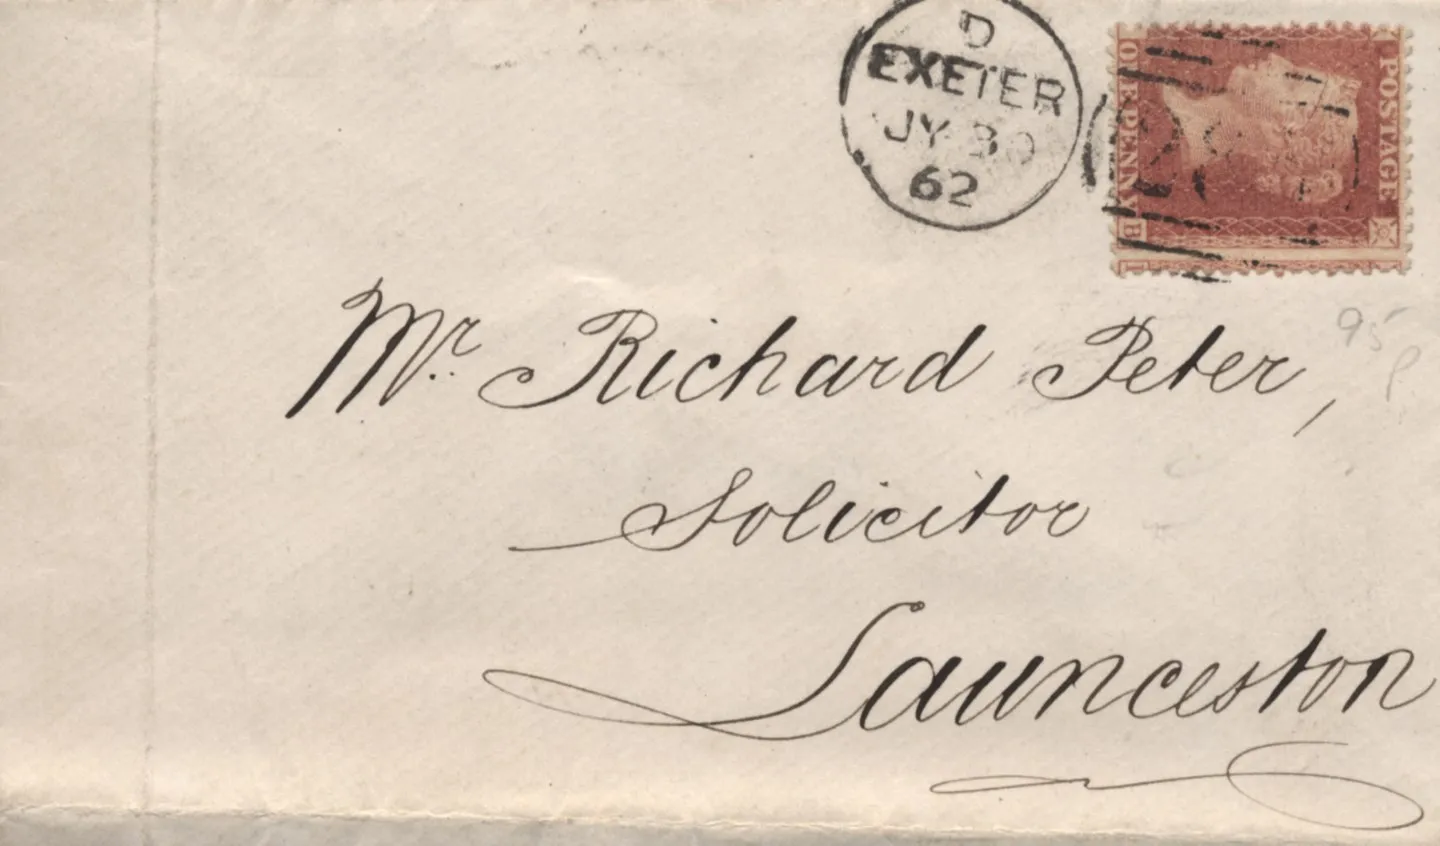 D
EXETER
JY 30
62
POSTAGE
ONE PENNY
B
Mr. Richard Peter,
Solicitor
Launceston
95
P